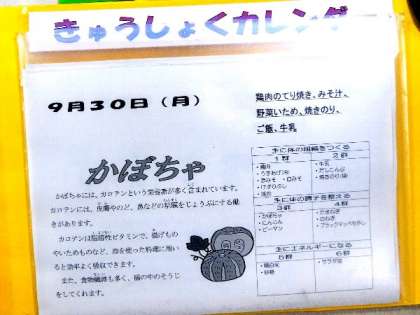 きゅうしょくカレンダ
9月30日(月)
鶏肉のてり焼き、みそ汁、
野菜いため、焼きのり、
ご飯、牛乳
かぼちゃ
かぼちゃには、カロテンという栄養素が多く含まれています。
カロテンには、皮膚やのど、鼻などの粘膜をじょうぶにする働
きがあります。
カロテンは脂溶性ビタミンで、揚げもの
やいためものなど、油を使った料理に用い
ると効率よく吸収できます。
また、食物繊維も多く、腸の中のそうじ
をしてくれます。
主に体の組織をつくる
1群 2群
・鶏肉
・牛乳
主に体の調子を整える
3群 4群
・かぼちゃ
・にんじん
・ピーマン
主にエネルギーになる
5群 6群
・サラダ油